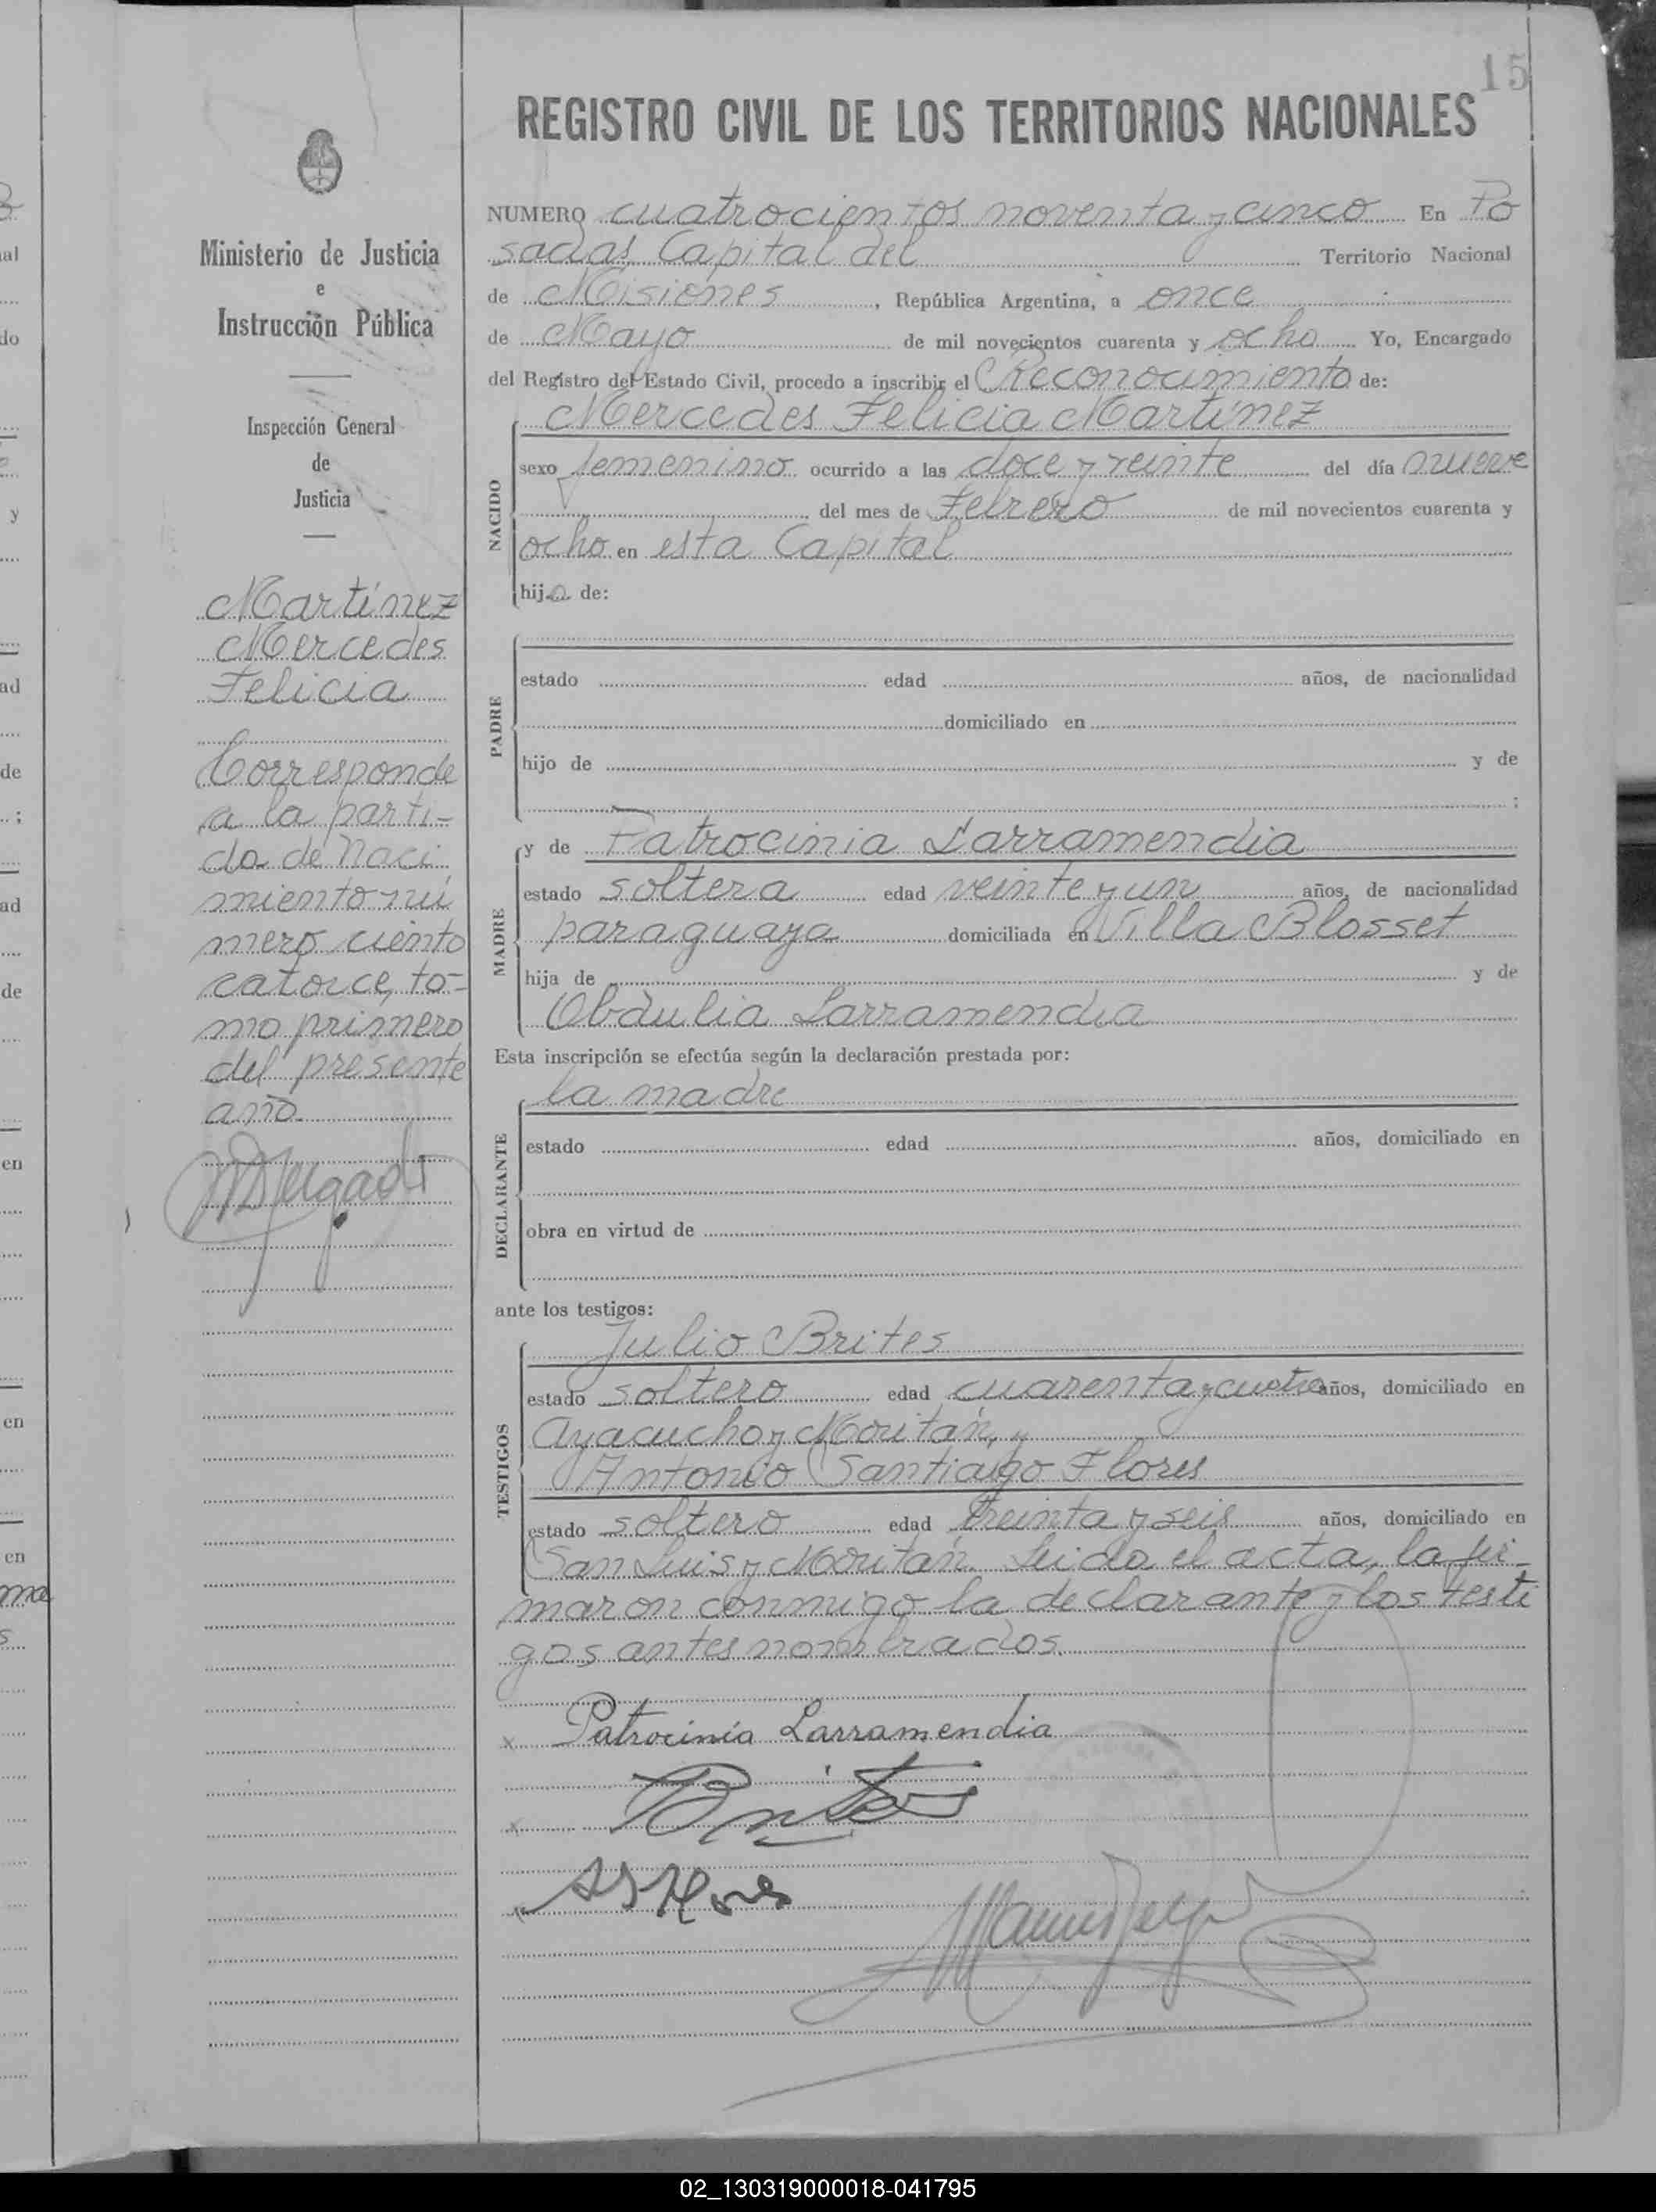 15
REGISTRO CIVIL DE LOS TERRITORIOS NACIONALES
Ministerio de Justicia
e
Instrucción Pública
Inspección General
de
Justicia
Martínez
Mercedes
Felicia
Corresponde
a la parti-
da de naci
miento nú
mero ciento
catorce, to-
mo primero
del presente
año.
NUMERO cuatrocientos noventa y cinco En Po
sadas Capital del Territorio Nacional
de Misiones, República Argentina, a once
de Mayo de mil novecientos cuarenta y ocho Yo, Encargado
del Registro del Estado Civil, procedo a inscribir el Reconocimiento de:
NACIDO
Mercedes Felicia Martínez
sexo femenino ocurrido a las doce y veinte del día nueve
del mes de Febrero de mil novecientos cuarenta y
ocho en esta Capital
hija de:
PADRE
estado edad años, de nacionalidad
domiciliado en
hijo de y de
;
MADRE
y de Patrocinia Larramendia
estado soltera edad veinte y un años, de nacionalidad
paraguaya domiciliada en Villa Blosset
hija de y de
Obdulia Larramendia
Esta inscripción se efectúa según la declaración prestada por:
DECLARANTE
la madre
estado edad años, domiciliado en
obra en virtud de
ante los testigos:
TESTIGOS
Julio Brites
estado soltero edad cuarenta y cuatro años, domiciliado en
Ayacucho y Moritán, y
Antonio Santiago Flores
estado soltero edad treinta y seis años, domiciliado en
San Luis y Moritán. Leida el acta, la fir-
maron conmigo la declarante y los testi
gos antes nombrados.
x Patrocinia Larramendia
x Brites
02_130319000018-041795